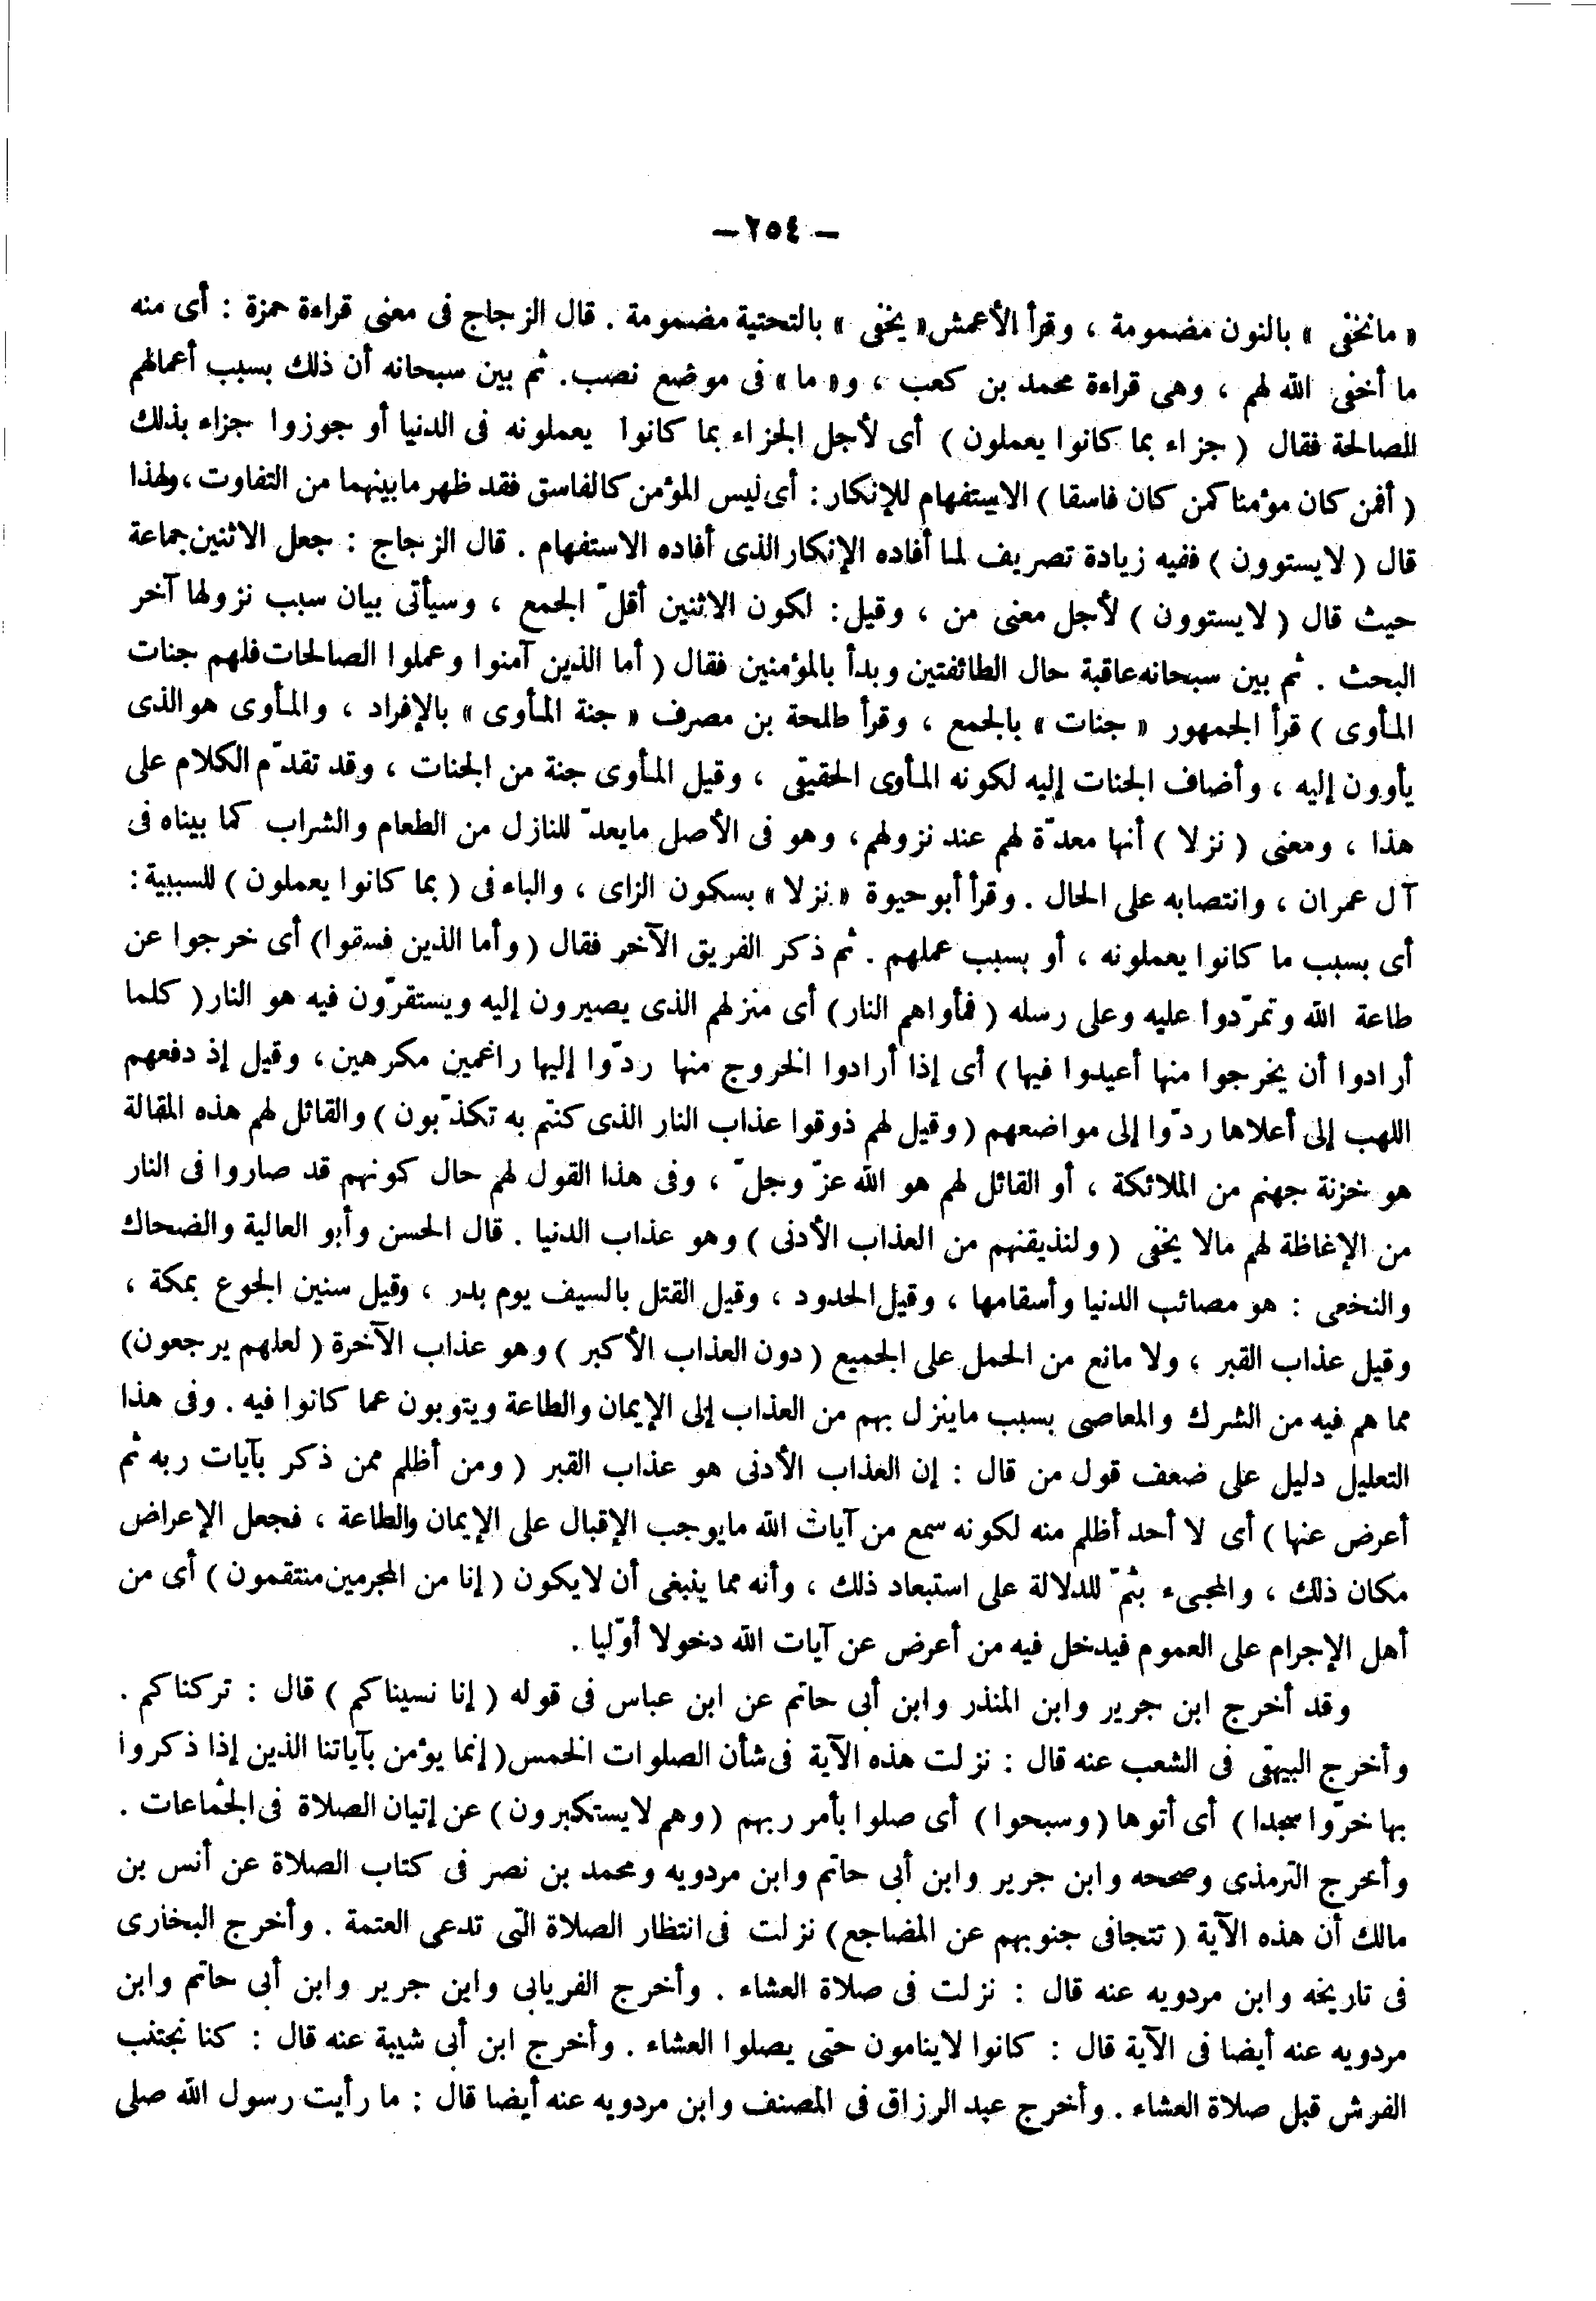 — ٢٥٤ —
« مانخفى » بالنون مضمومة ، وقرأ الأعمش « يخفى » بالتحتية مضمومة . قال الزجاج فى معنى قراءة حمزة : أى منه
ما أخفى الله لهم ، وهى قراءة محمد بن كعب ، و« ما » فى موضع نصب. ثم بين سبحانه أن ذلك بسبب أعمالهم
الصالحة فقال ( جزاء بما كانوا يعملون ) أى لأجل الجزاء بما كانوا يعملونه فى الدنيا أو جوزوا جزاء بذلك
( أفمن كان مؤمنا كمن كان فاسقا ) الاستفهام للإنكار : أى ليس المؤمن كالفاسق فقد ظهر مابينهما من التفاوت ، ولهذا
قال ( لايستوون ) ففيه زيادة تصريف لما أفاده الإنكار الذى أفاده الاستفهام . قال الزجاج : جعل الاثنين جماعة
حيث قال ( لايستوون ) لأجل معنى من ، وقيل : لكون الاثنين أقلّ الجمع ، وسيأتى بيان سبب نزولها آخر
البحث . ثم بين سبحانه عاقبة حال الطائفتين وبدأ بالمؤمنين فقال ( أما الذين آمنوا وعملوا الصالحات فلهم جنات
المأوى ) قرأ الجمهور « جنات » بالجمع ، وقرأ طلحة بن مصرف « جنة المأوى » بالإفراد ، والمأوى هو الذى
يأوون إليه ، وأضاف الجنات إليه لكونه المأوى الحقيقى ، وقيل المأوى جنة من الجنات ، وقد تقدّم الكلام على
هذا ، ومعنى ( نزلا ) أنها معدّة لهم عند نزولهم، وهو فى الأصل مايعدّ للنازل من الطعام والشراب كما بيناه فى
آل عمران ، وانتصابه على الحال . وقرأ أبو حيوة « نزلا » بسكون الزاى ، والباء فى ( بما كانوا يعملون ) للسببية :
أى بسبب ما كانوا يعملونه ، أو بسبب عملهم . ثم ذكر الفريق الآخر فقال ( وأما الذين فسقوا) أى خرجوا عن
طاعة الله وتمرّدوا عليه وعلى رسله ( فمأواهم النار ) أى منزلهم الذى يصيرون إليه ويستقرّون فيه هو النار ( كلما
أرادوا أن يخرجوا منها أعيدوا فيها ) أى إذا أرادوا الخروج منها ردّوا إليها راغمين مكرهين ، وقيل إذ دفعهم
اللهب إلى أعلاها ردّوا إلى مواضعهم ( وقيل لهم ذوقوا عذاب النار الذى كنتم به تكذّبون ) والقائل لهم هذه المقالة
هو خزنة جهنم من الملائكة ، أو القائل لهم هو الله عزّ وجلّ ، وفى هذا القول لهم حال كونهم قد صاروا فى النار
من الإغاظة لهم مالا يخفى ( ولنذيقنهم من العذاب الأدنى ) وهو عذاب الدنيا . قال الحسن وأبو العالية والضحاك
والنخعى : هو مصائب الدنيا وأسقامها ، وقيل الحدود ، وقيل القتل بالسيف يوم بدر ، وقيل سنين الجوع بمكة ،
وقيل عذاب القبر ، ولا مانع من الحمل على الجميع ( دون العذاب الأكبر ) وهو عذاب الآخرة ( لعلهم يرجعون)
مما هم فيه من الشرك والمعاصى بسبب ماينزل بهم من العذاب إلى الإيمان والطاعة ويتوبون عما كانوا فيه . وفى هذا
التعليل دليل على ضعف قول من قال : إن العذاب الأدنى هو عذاب القبر ( ومن أظلم ممن ذكر بآيات ربه ثم
أعرض عنها ) أى لا أحد أظلم منه لكونه سمع من آيات الله مايوجب الإقبال على الإيمان والطاعة ، فجعل الإعراض
مكان ذلك ، والمجىء بثمّ للدلالة على استبعاد ذلك ، وأنه مما ينبغى أن لايكون ( إنا من المجرمين منتقمون ) أى من
أهل الإجرام على العموم فيدخل فيه من أعرض عن آيات الله دخولا أوّليا .
وقد أخرج ابن جرير وابن المنذر وابن أبى حاتم عن ابن عباس فى قوله ( إنا نسيناكم ) قال : تركناكم .
وأخرج البيهقى فى الشعب عنه قال : نزلت هذه الآية فى شأن الصلوات الخمس ( إنما يؤمن بآياتنا الذين إذا ذكروا
بها خرّوا سجدا ) أى أتوها ( وسبحوا ) أى صلوا بأمر ربهم ( وهم لايستكبرون ) عن إتيان الصلاة فى الجماعات .
وأخرج الترمذى وصححه وابن جرير وابن أبى حاتم وابن مردويه ومحمد بن نصر فى كتاب الصلاة عن أنس بن
مالك أن هذه الآية ( تتجافى جنوبهم عن المضاجع ) نزلت فى انتظار الصلاة التى تدعى العتمة . وأخرج البخارى
فى تاريخه وابن مردويه عنه قال : نزلت فى صلاة العشاء . وأخرج الفريابى وابن جرير وابن أبى حاتم وابن
مردويه عنه أيضا فى الآية قال : كانوا لاينامون حتى يصلوا العشاء . وأخرج ابن أبى شيبة عنه قال : كنا نجتنب
الفرش قبل صلاة العشاء . وأخرج عبد الرزاق فى المصنف وابن مردويه عنه أيضا قال : ما رأيت رسول الله صلى